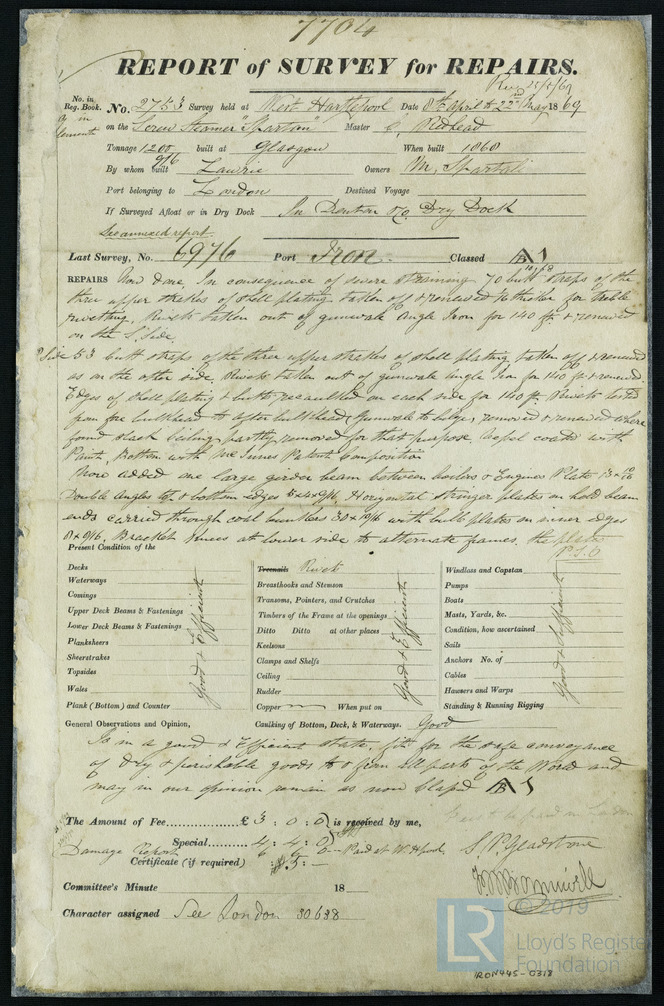 7704
REPORT of SURVEY for REPAIRS.
No. in Reg. Book. No. 2753 Survey held at West Hartlepool Date 8th April to 22nd May 1869
on the Screw Steamer "Spartan" Master C. Redhead
Tonnage 1200 built at Glasgow When built 1868
916
By whom built Lawrie Owners M. Spartali
Port belonging to London Destined Voyage
If Surveyed Afloat or in Dry Dock In Denton & Co Dry Dock
See annexed report
Last Survey, No. 6976 Port Iron Classed A 1
REPAIRS Now done, In consequence of severe straining 70 butt straps of the
three upper strakes of shell plating taken off & renewed thicker for treble
rivetting, Rivets taken out of gunwale angle Iron for 140 ft. & renewed
on the S. Side.
P Side 53 butt straps of the three upper strakes of shell plating taken off & renewed
as on the other side, Rivets taken out of gunwale angle Iron for 140 ft & renewed
Edges of shell plating & butts recaulked on each side for 140 ft. Rivets tested
from fore bulkhead to after bulkhead, Gunwale to bilge, removed & renewed where
found slack Ceiling partly removed for that purpose, vessel coated with
Paint, Bottom with McInnes Patent Composition
Now added one large girder beam between boilers & Engines Plate
Double angles top & bottom edges Horizontal Stringer plates on hold beam
ends carried through coal bunkers 30 x 10/16 with bulb plates on inner edges
8 x 9/16, Bracket knees at lower side to alternate frames, the plates
P.T.O
Present Condition of the
Decks
Waterways
Comings
Upper Deck Beams & Fastenings
Lower Deck Beams & Fastenings
Planksheers
Sheerstrakes
Topsides
Wales
Plank (Bottom) and Counter
Good & Efficient
Treenails Rivets
Breasthooks and Stemson
Transoms, Pointers, and Crutches
Timbers of the Frame at the openings
Ditto Ditto at other places
Keelsons
Clamps and Shelfs
Ceiling
Rudder
Copper When put on
Good & Efficient
Windlass and Capstan
Pumps
Boats
Masts, Yards, &c.
Condition, how ascertained
Sails
Anchors No. of
Cables
Hawsers and Warps
Standing & Running Rigging
Good & Efficient
General Observations and Opinion, Caulking of Bottom, Deck, & Waterways. Good
Is in a good & Efficient state, fit for the safe conveyance
of Dry & perishable goods to & from all parts of the World and
may in our opinion remain as now Classed A 1
The Amount of Fee £ 3 : 0 : 0 is received by me,
Special 4 : 4 : 0
Damage Report Paid at W. Hpool.
Certificate (if required) : 5 : -
S. P. Gladstone
Committee's Minute 18
Character assigned See London 30638
© 2019
LR
Lloyd's Register
Foundation
IRON445-0318